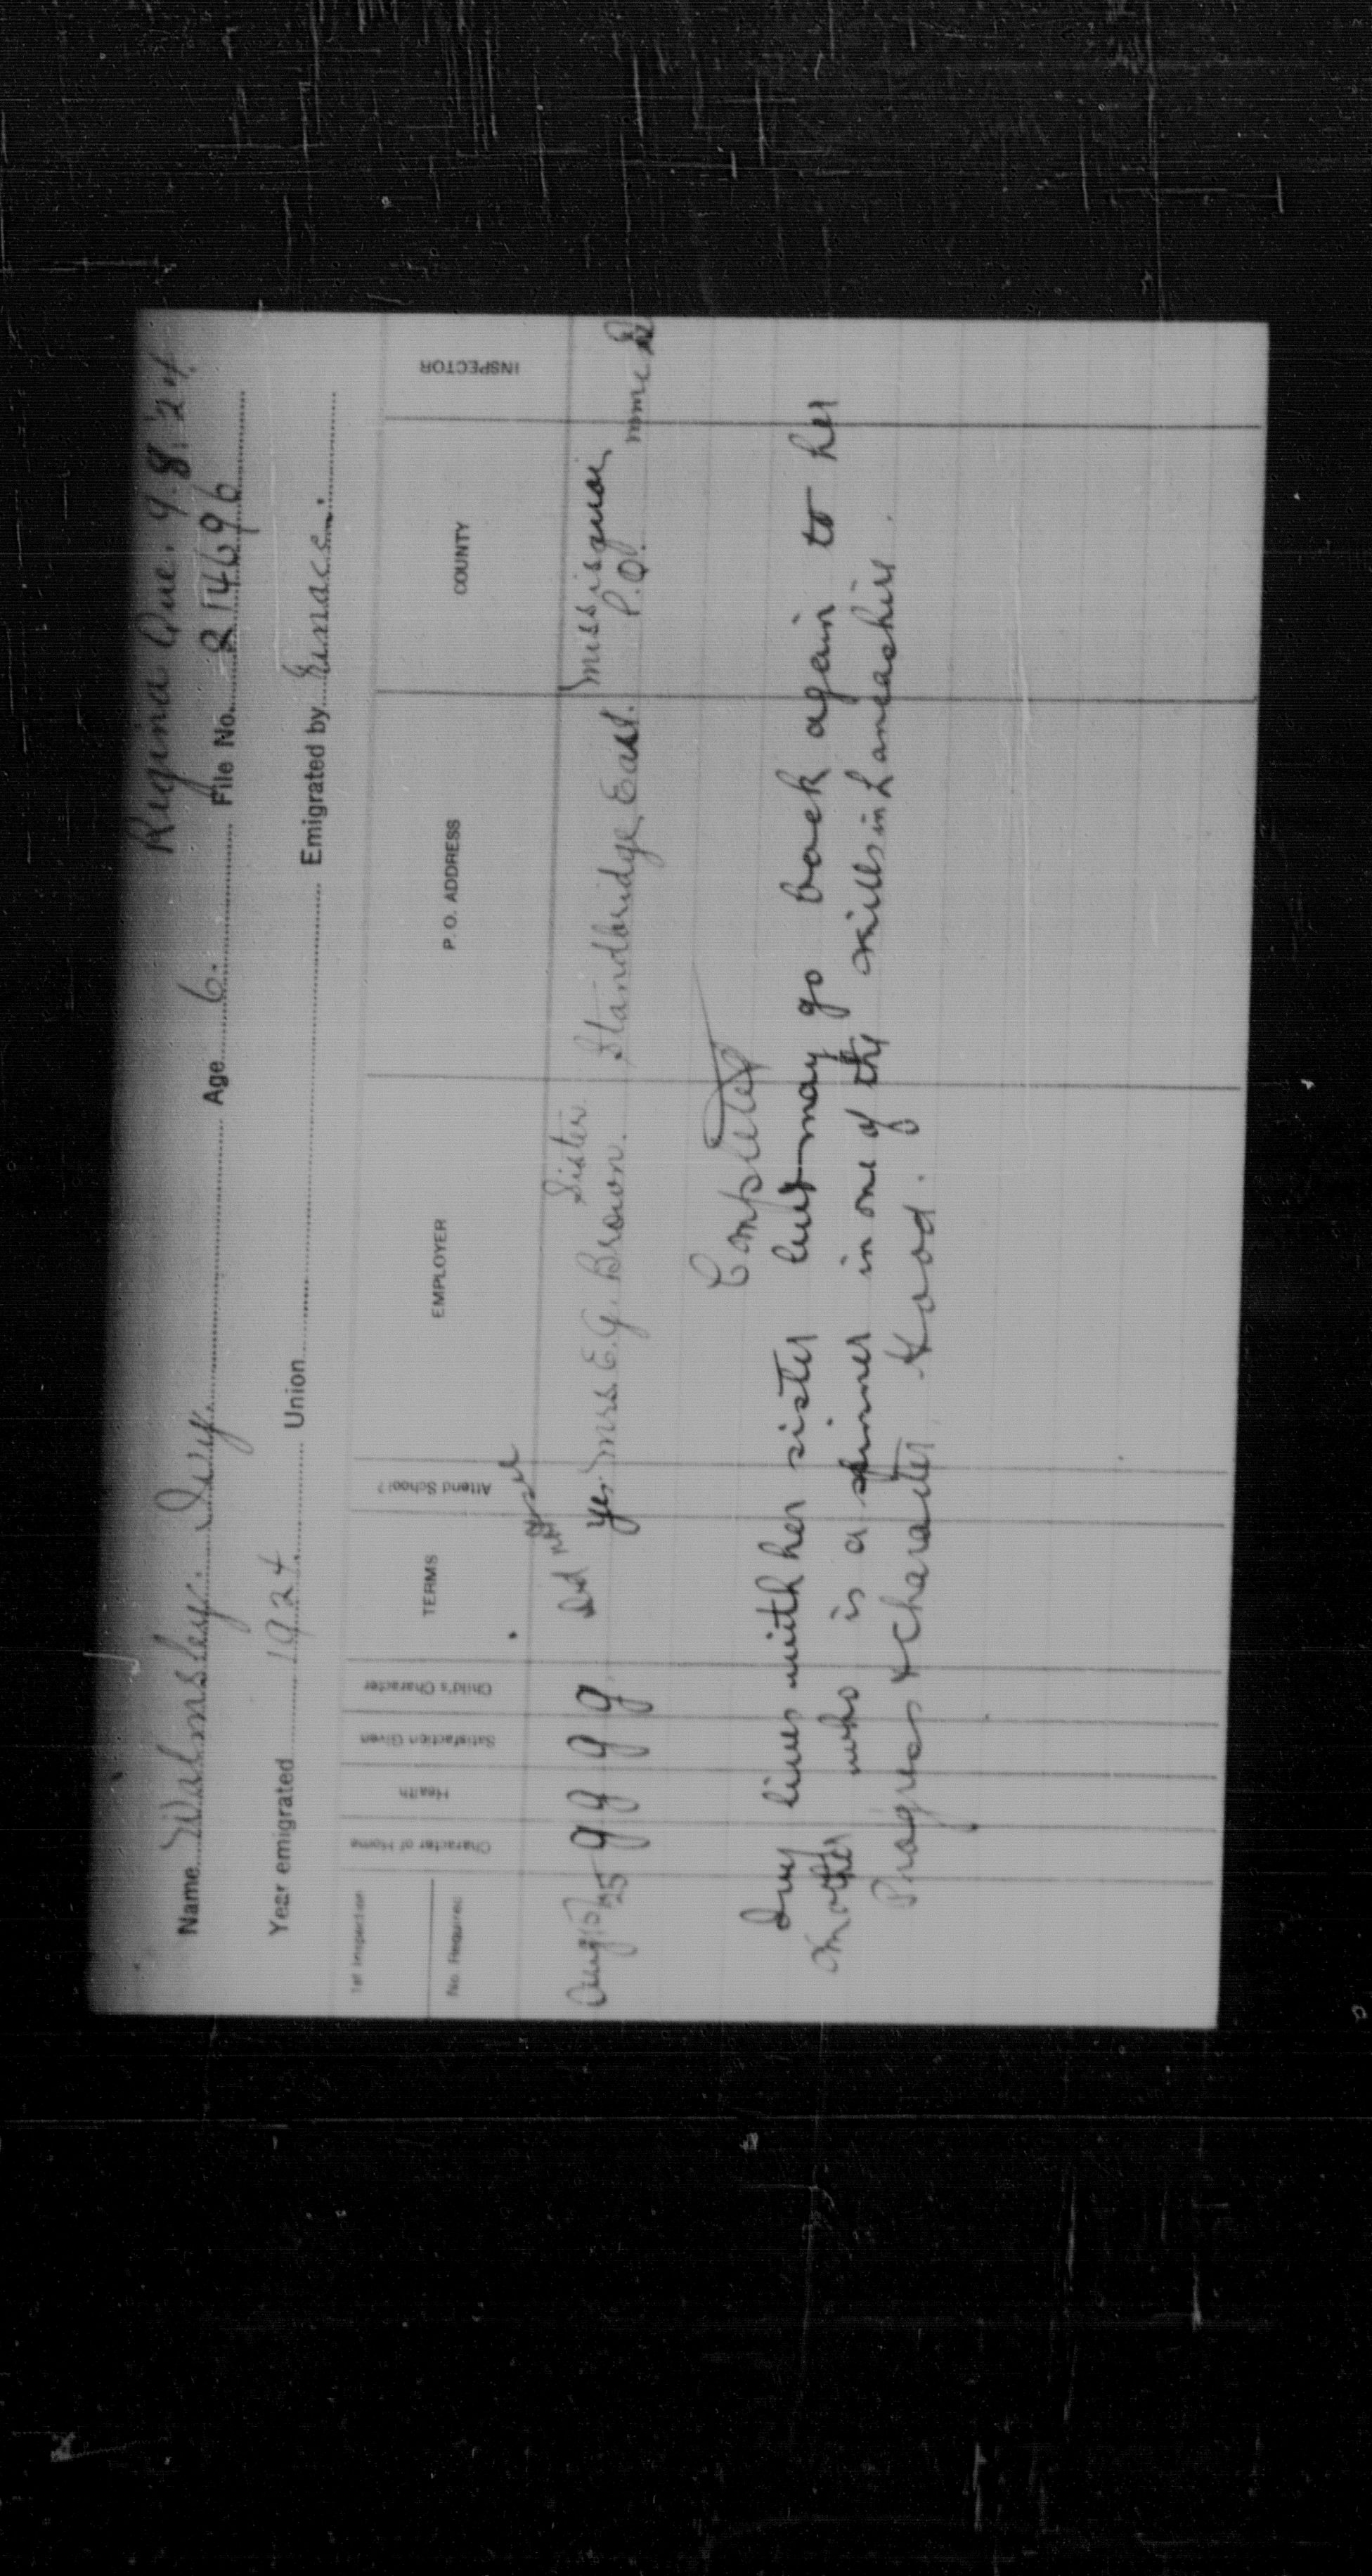 Regina Que. 9.8.'24
Name Walmsley. Ivy. Age 6. File No. 814696
Year emigrated 1924. Union Emigrated by
1st Inspection
No. Required
Character of Home
Health
Satisfaction Given
Child's Character
TERMS
Attend School?
EMPLOYER
P. O. ADDRESS
COUNTY
INSPECTOR
Sister
Aug 15/25 g g g g yes Mrs. E. G. Brown. Standbridge, East. Missisquoi
P.Q.
Completed
Ivy lives with her sister but may go back again to her
mother who is a spinner in one of the mills in Lancashire.
Progress & character good.